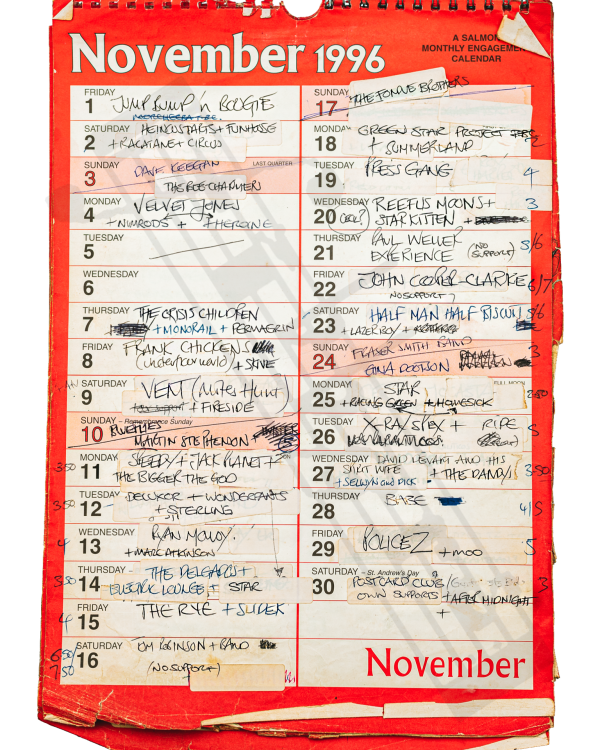 A SALMON
MONTHLY ENGAGEMENT
CALENDAR
November 1996
FRIDAY
1 JUMP BUMP 'n BOOGIE
SATURDAY
2 HEINOUSTARTS + FUNHOUSE
+ RACATANE + CIRCUS
SUNDAY
3 DAVE KEEGAN
LAST QUARTER
THE BOE CHARMERS
MONDAY
4 VELVET JONES
+ NIMRODS + HEROINE
TUESDAY
5
WEDNESDAY
6
THURSDAY
7 THE CRISIS CHILDREN
+ MONORAIL + PERMAGRIN
FRIDAY
8 FRANK CHICKENS
(Underfourworld) + SKIVE
SATURDAY
9 VENT (Miles Hunt)
+ FIRESIDE
SUNDAY – Remembrance Sunday
10 RUETHIES
MARTIN STEPHENSON +
MONDAY
11 SPEEDY + JACK PLANETT
THE BIGGER THE GOD
3.50
TUESDAY
12 DELUXOR + WONDERPANTS
+ STERLING
3.50
WEDNESDAY
13 RYAN MOLLOY
+ MARC ATKINSON
4
THURSDAY
14 THE DELGADOS +
ELECTRIC LOUNGE + STAR
3.50
FRIDAY
15 THE RYE + SLIDER
4
SATURDAY
16 TOM ROBINSON + BAND
(NO SUPPORT)
6.50
7.50
SUNDAY
17 THE FONDUE BROTHERS
MONDAY
18 GREEN STAR PROJECT
+ SUMMERLAND
TUESDAY
19 PRESS GANG
4
WEDNESDAY
20 REEFUS MOONS +
STARKITTEN +
3
THURSDAY
21 PAUL WELLER
EXPERIENCE (NO SUPPORT)
5/6
FRIDAY
22 JOHN COOPER-CLARKE
NO SUPPORT
6/7
SATURDAY
23 HALF MAN HALF BISCUIT
+ LAZERBOY +
5/6
SUNDAY
24 FRASER SMITH BAND
GINA DOOTSON
3
MONDAY
25 STAR
FULL MOON
+ RACING GREEN + HOMESICK
TUESDAY
26 X-RAY SPEX + RIPE
5
WEDNESDAY
27 DAVID DEVANT AND HIS
SPIRIT WIFE + THE DANDYS
+ SELWYN and DICK
3.50
THURSDAY
28 BABE
4/5
FRIDAY
29 POLICE Z + MOO
5
SATURDAY – St. Andrew's Day
30 POSTCARD CLUB/
OWN SUPPORTS + AFTER MIDNIGHT
+
3
November